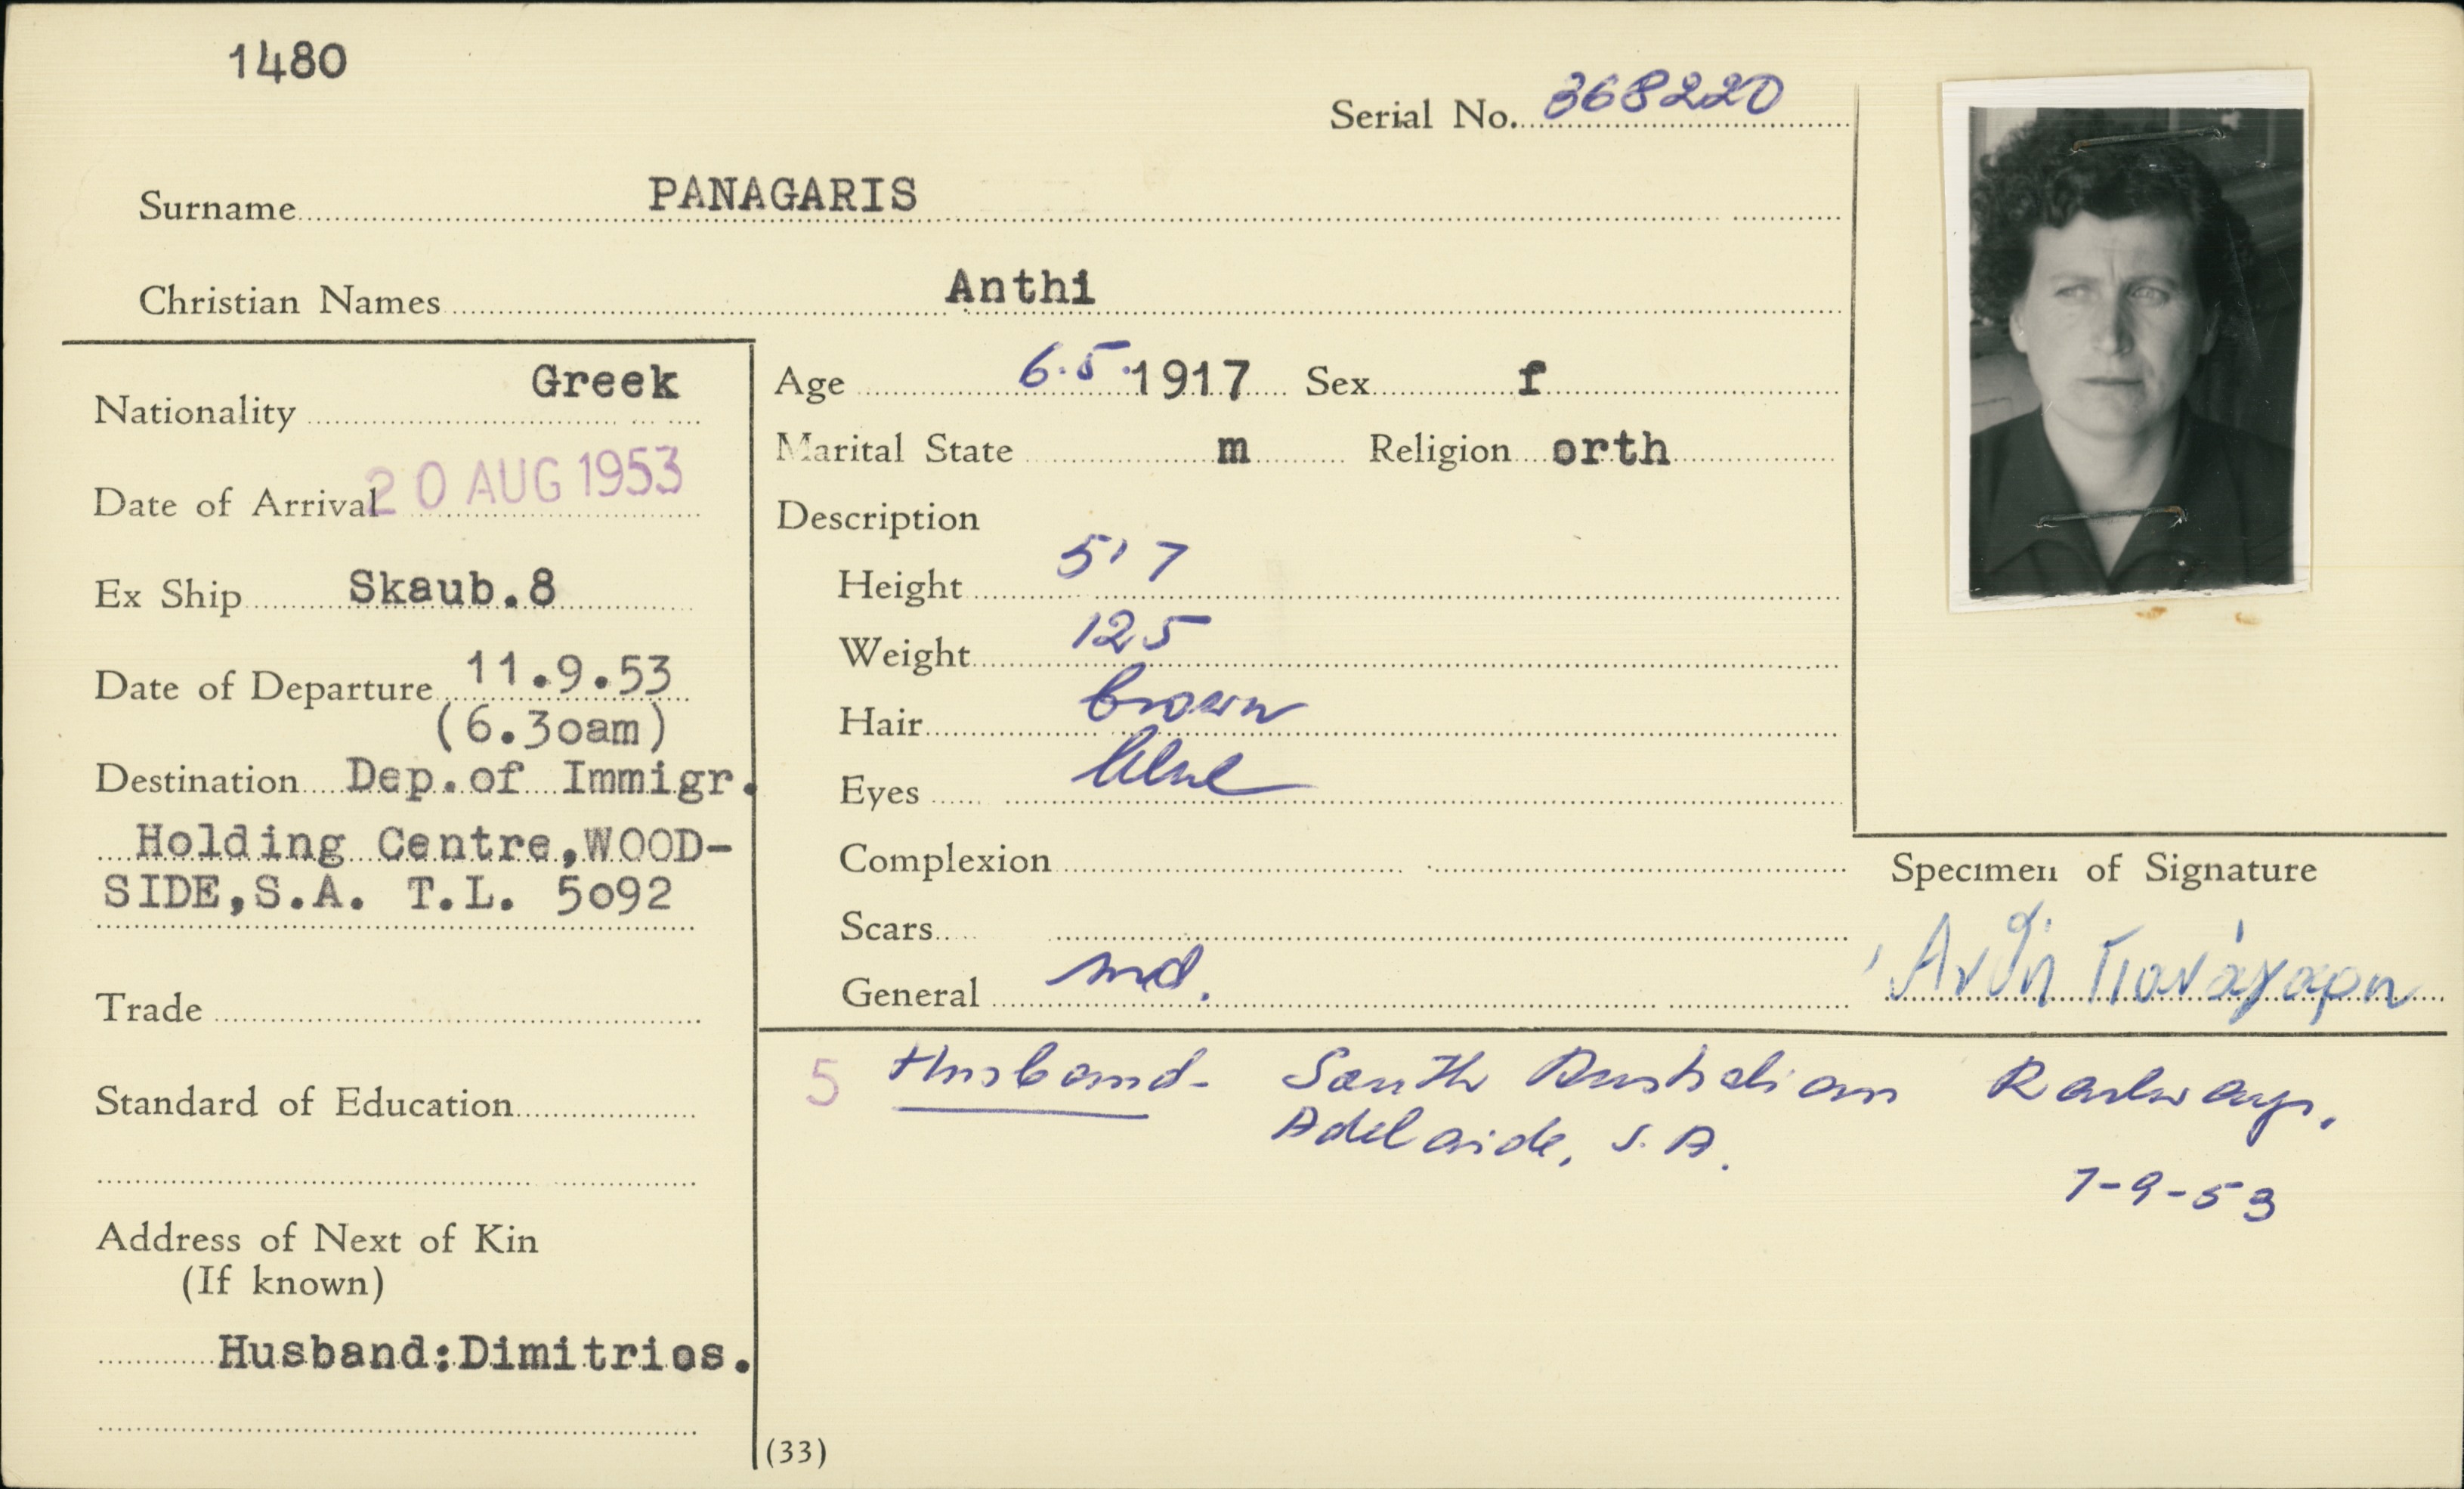 1480
Serial No. 368220
Surname PANAGARIS
Christian Names Anthi
Nationality Greek
Date of Arrival 20 AUG 1953
Ex Ship Skaub.8
Date of Departure 11.9.53
(6.3oam)
Destination Dep.of Immigr.
Holding Centre,WOOD-
SIDE,S.A. T.L. 5o92
Trade
Standard of Education
Address of Next of Kin
(If known)
Husband:Dimitrios.
Age 6.5.1917 Sex f
Marital State m Religion orth
Description
Height 5'7
Weight 125
Hair brown
Eyes blue
Complexion
Scars
General
Specimen of Signature
Ἀνθή Πανάγαρη
5 Husband- South Australian Railways,
Adelaide, S.A.
7-9-53
(33)